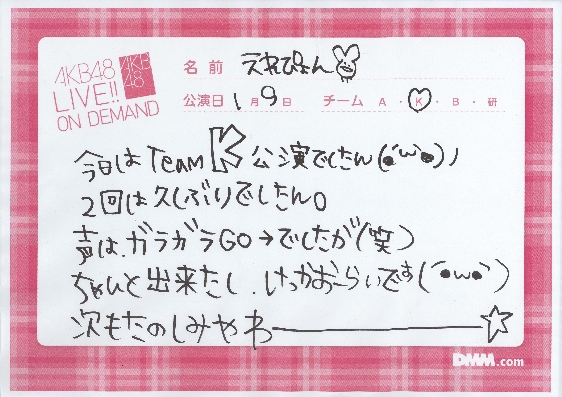 AKB48
LIVE!!
ON DEMAND
AKB
48
名前 えれぴょん
公演日 1月9日 チーム A・K・B・研
今日は Team K 公演でしたん(●´ω`●)ノ
2回は久しぶりでしたん。
声は、ガラガラGO→でしたが(笑)
ちゃんと出来たし、けっかおーらいです(´●ω●`)
次もたのしみやわ――――☆
DMM.com